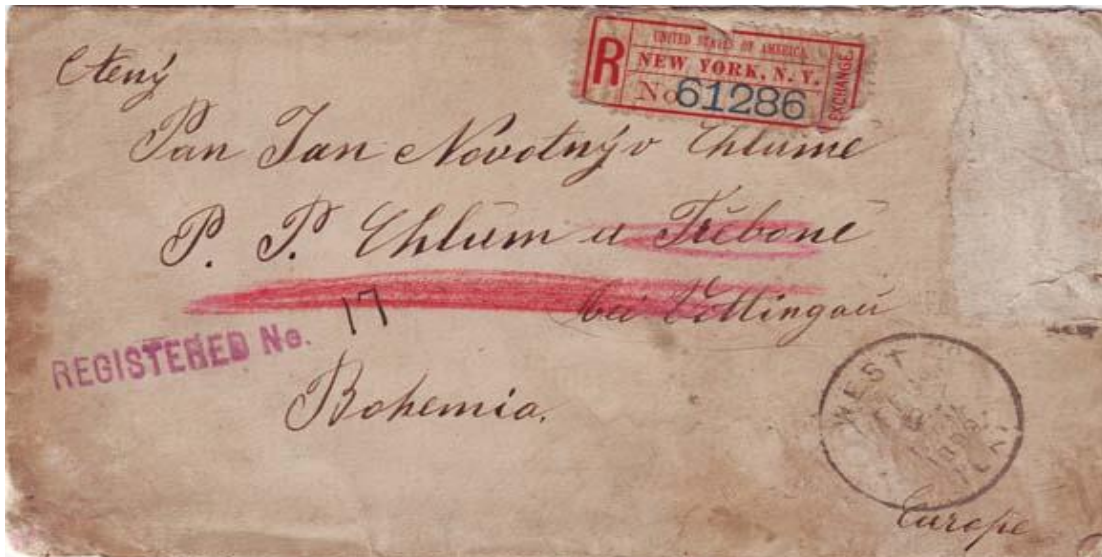 Ctený
R
UNITED STATES OF AMERICA
NEW YORK, N. Y.
No 61286
EXCHANGE
Pan Jan Novotný v Chlumě
P. P. Chlum u Třeboně
bei Vittingau
REGISTERED No. 17
Bohemia.
WEST
Europe